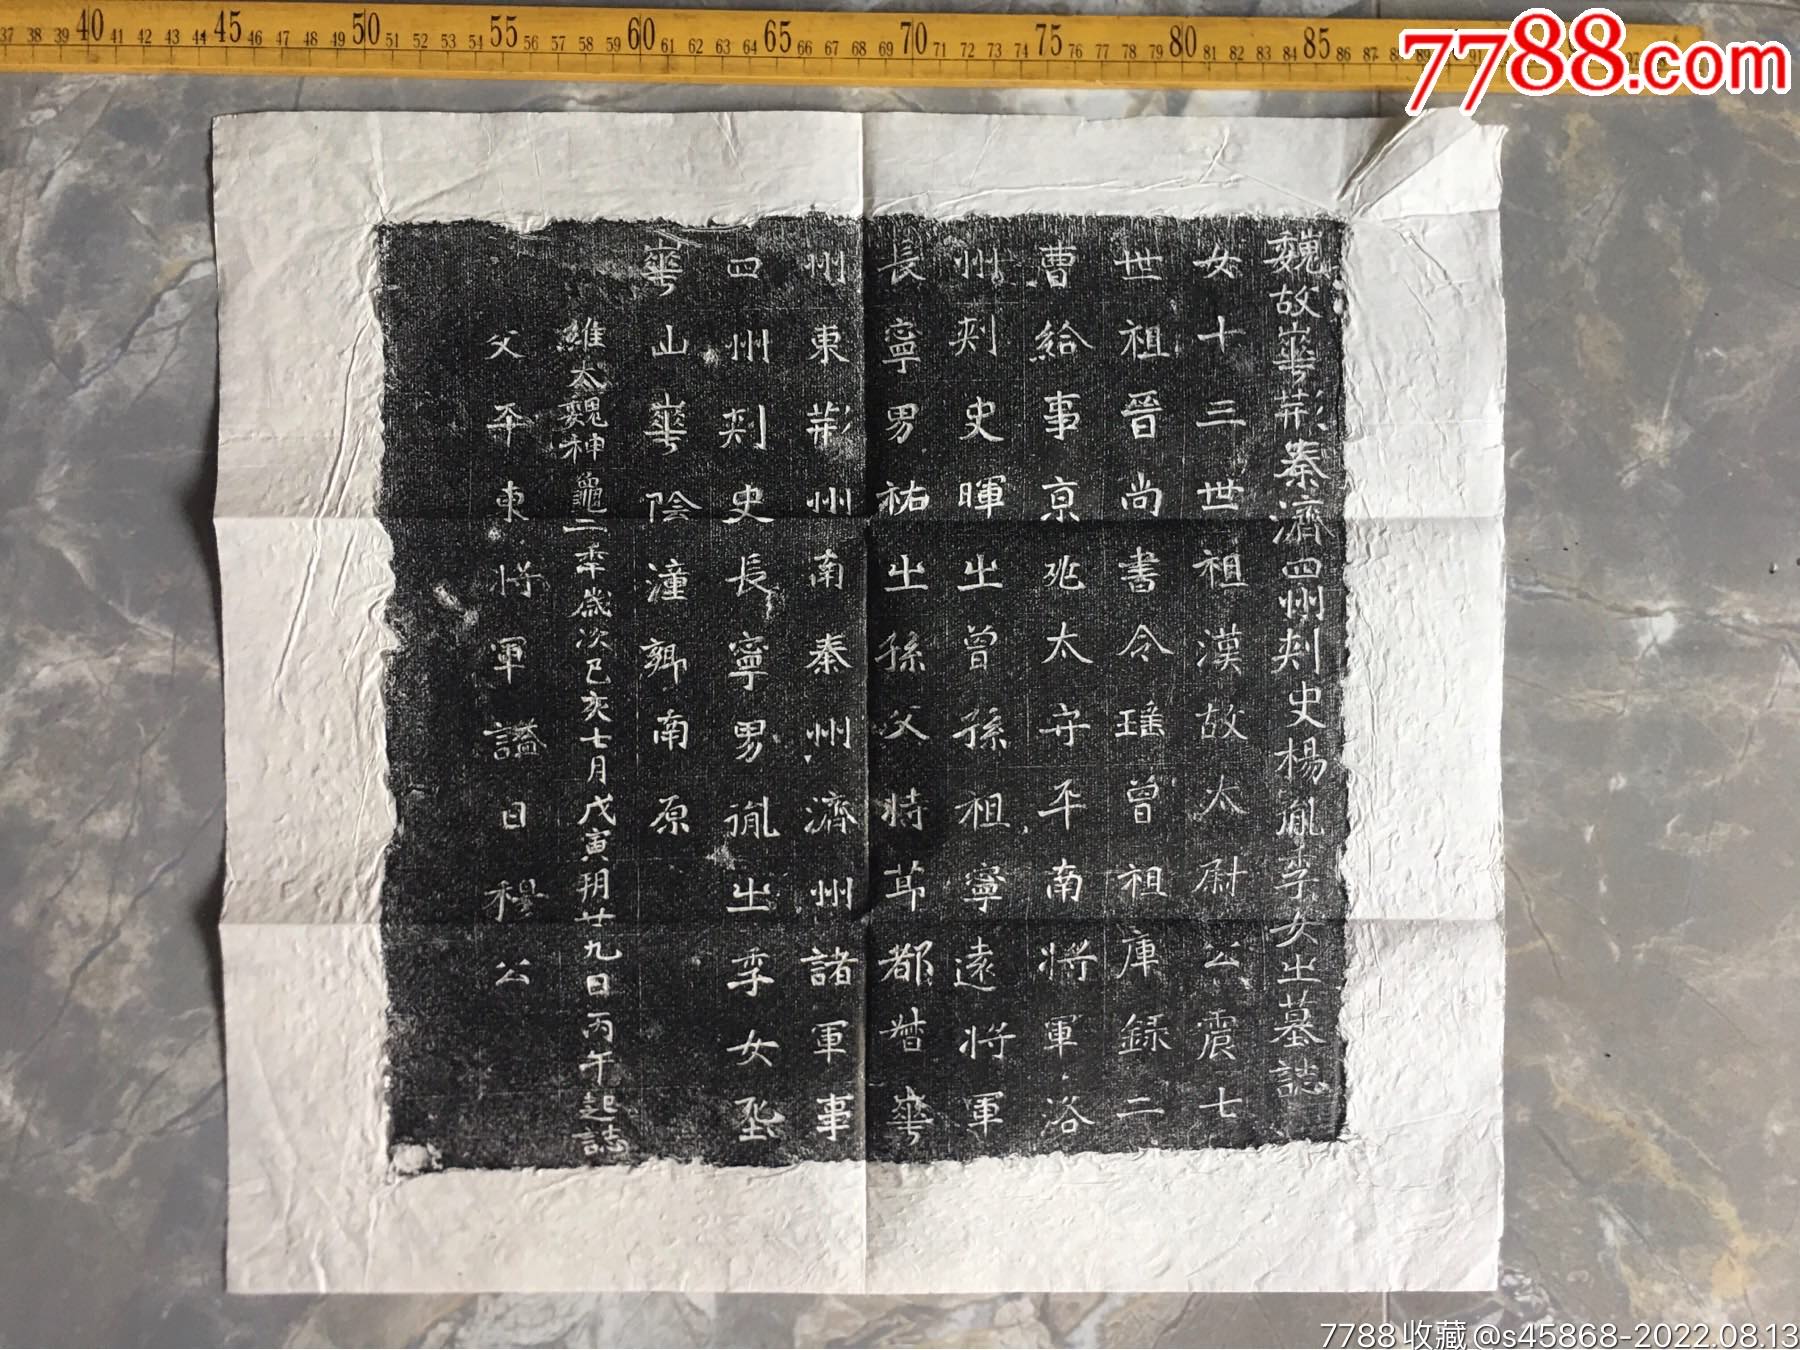 37 38 39 40 41 42 43 44 45 46 47 48 49 50 51 52 53 54 55 56 57 58 59 60 61 62 63 64 65 66 67 68 69 70 71 72 73 74 75 76 77 78 79 80 81 82 83 84 85 86 87
7788.com
魏故崋荊秦濟四州刺史楊胤季女之墓誌
女十三世祖漢故太尉公震七
世祖晉尚書令瑤曾祖庫錄二
曹給事京兆太守平南將軍洛
州刺史暉之曾孫祖寧遠將軍
長寧男祐之孫父持節都督崋
州東荊州南秦州濟州諸軍事
四州刺史長寧男胤之季女坙
崋山崋陰潼鄉南原
維太魏神龜二年歲次己亥七月戊寅朔廿九日丙午起誌
父平東將軍謚曰穆公
7788收藏@s45868-2022.08.13